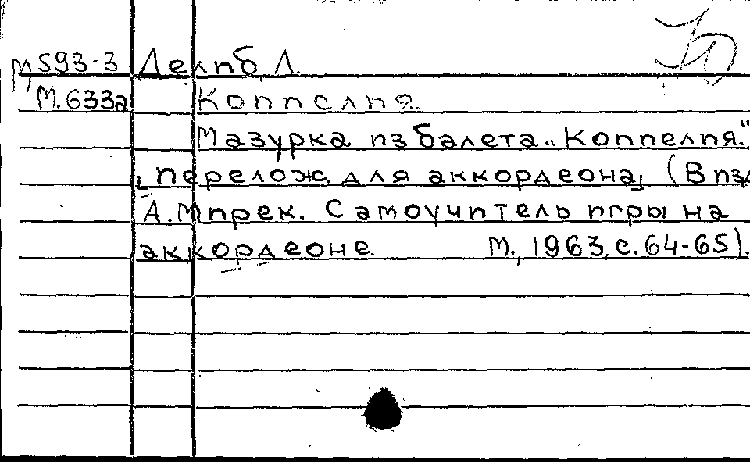 М 593-3 Делиб, Л.
М.633а Коппелия.
Мазурка из балета „Коппелия."
[перелож. для аккордеона] (В изд.
А.Мирек. Самоучитель игры на
аккордеоне. М., 1963, с.64-65).